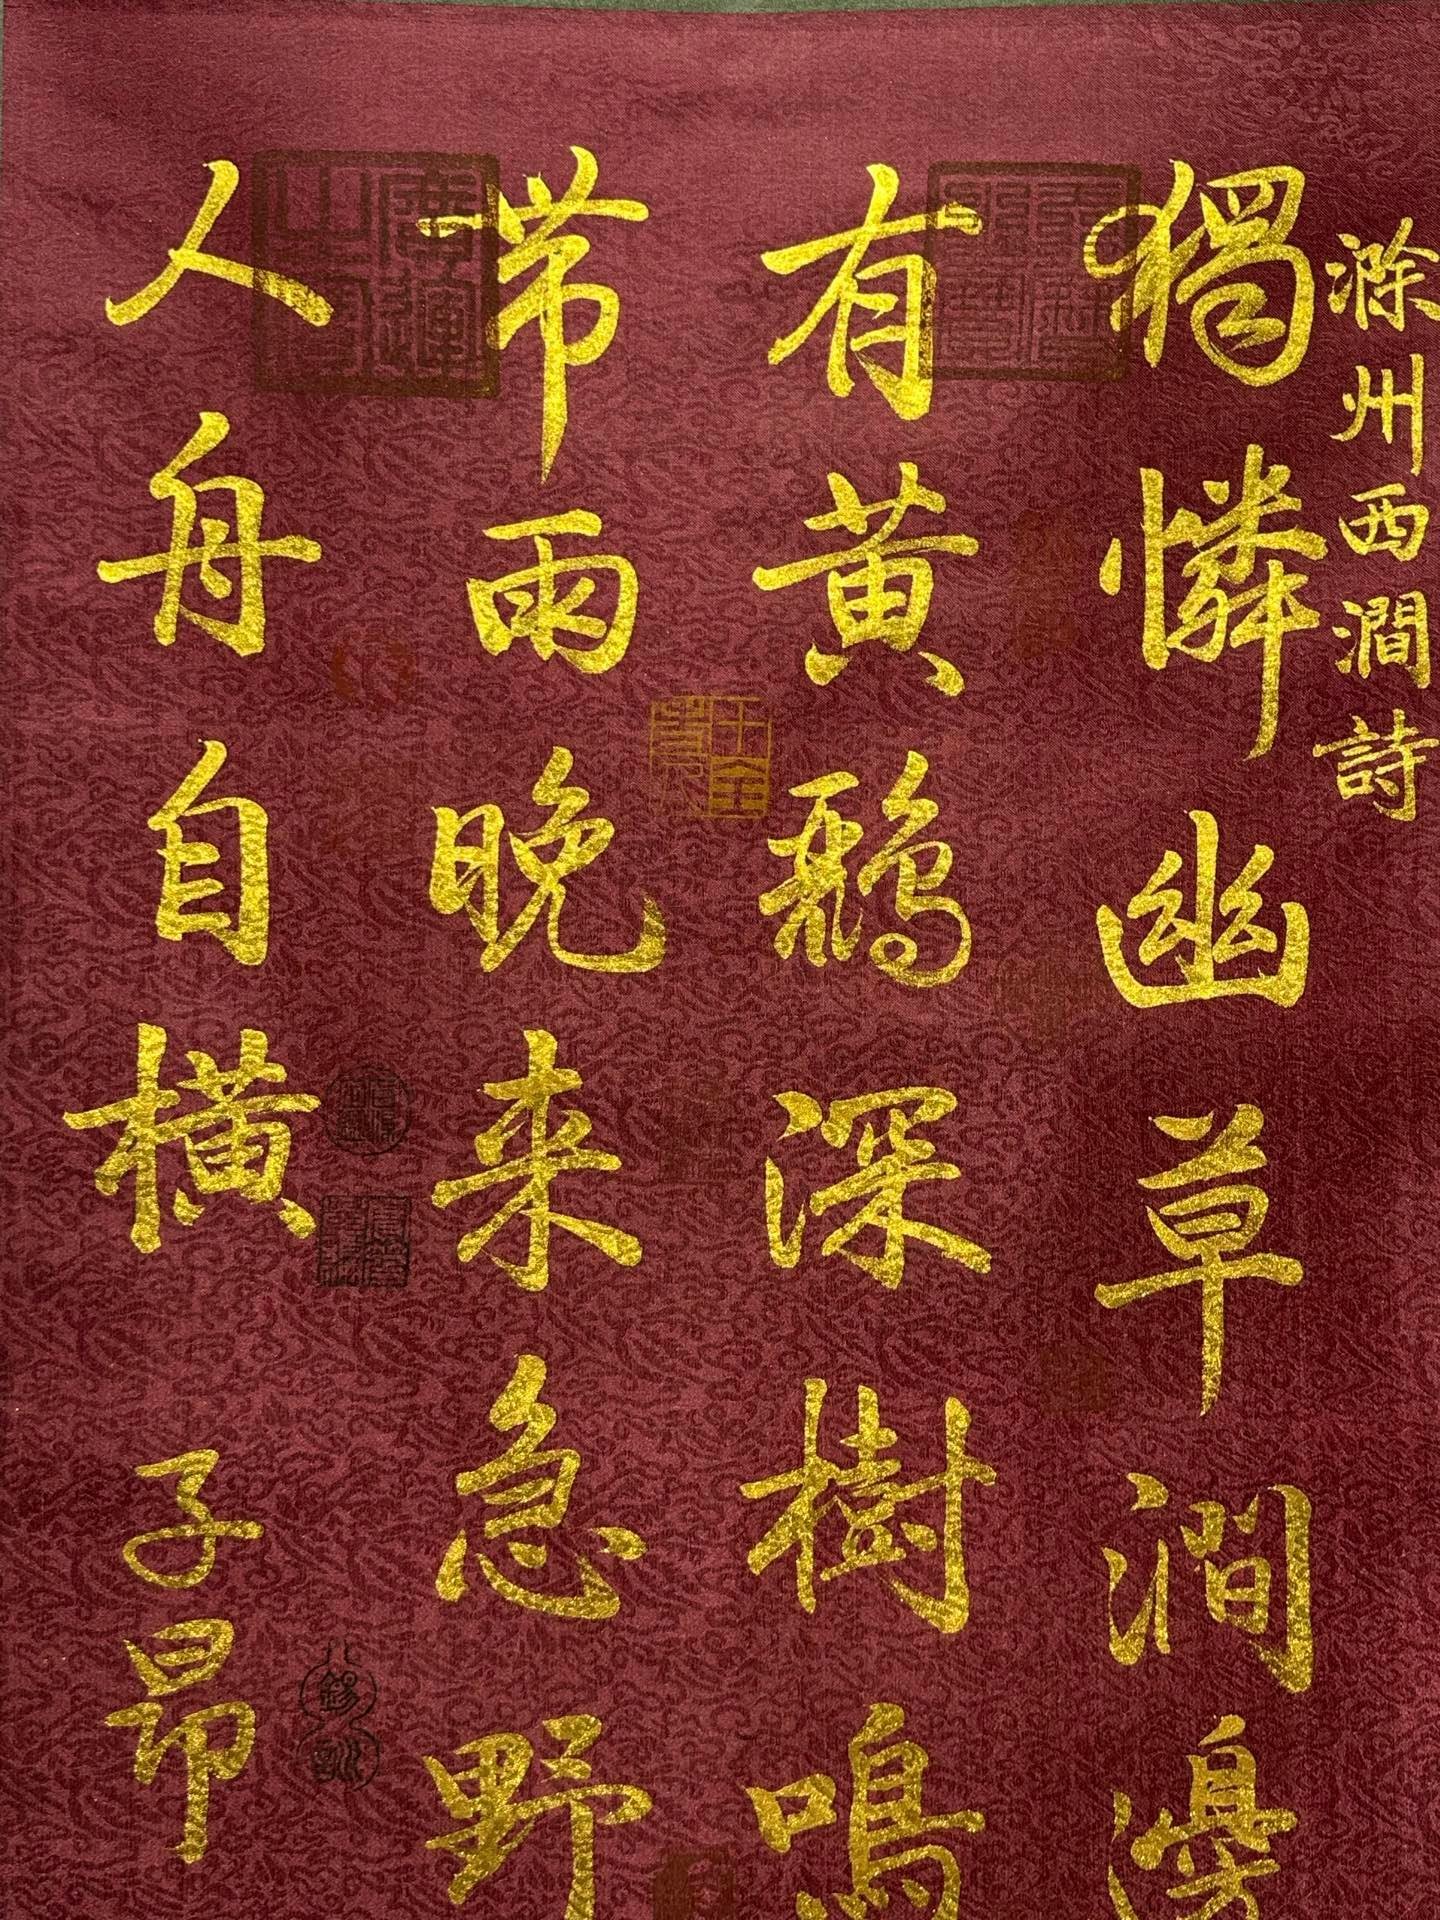 滁州西澗詩
獨憐幽草澗邊
有黃鸝深樹鳴
带雨晚来急野
人舟自橫
子昂